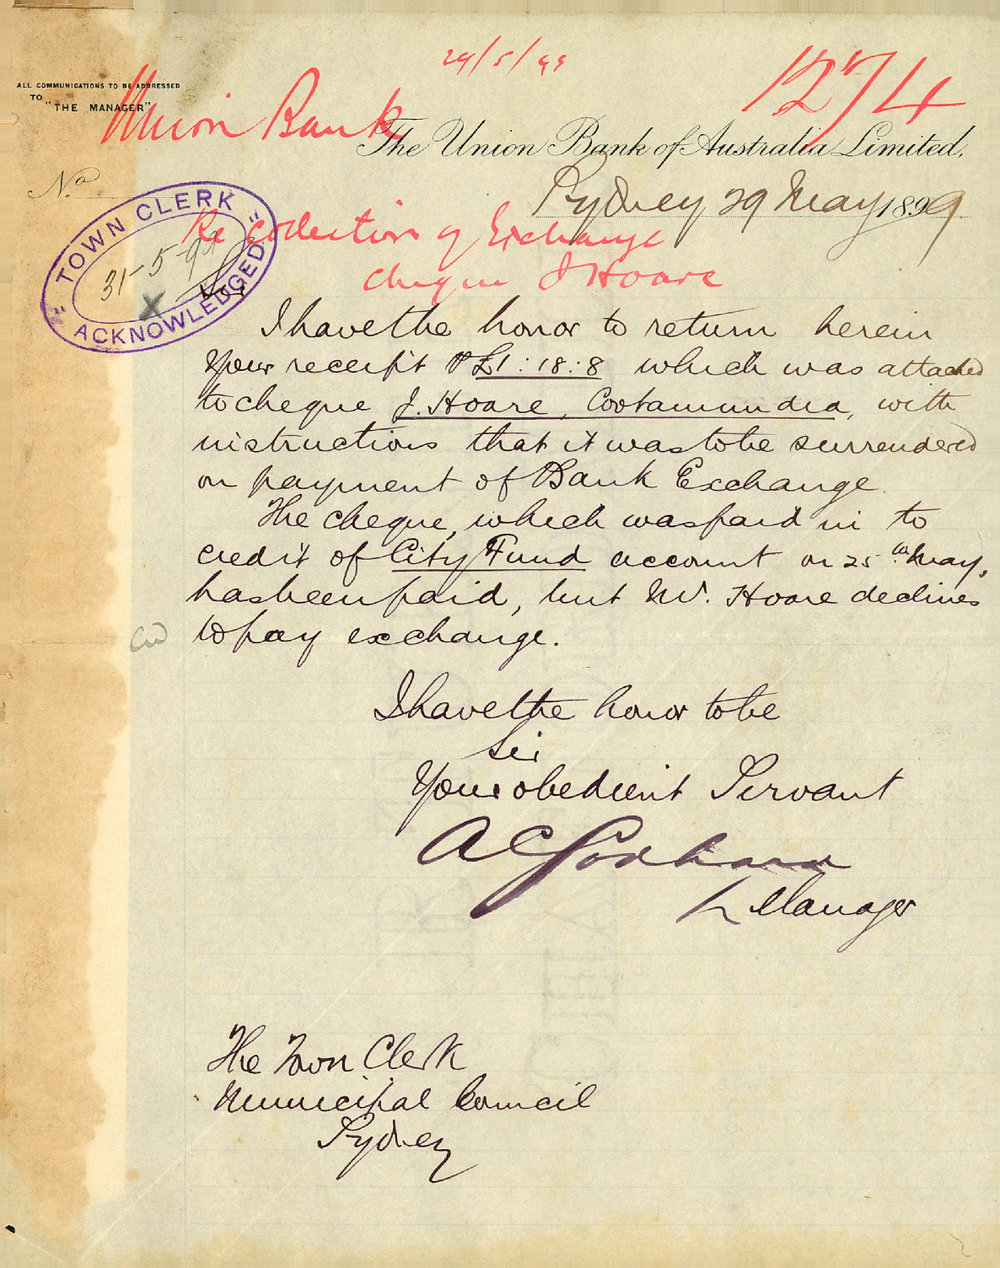 29/5/99
1274
ALL COMMUNICATIONS TO BE ADDRESSED
TO
"THE MANAGER"
Union Bank
The Union Bank of Australia Limited.
No
Sydney 29 May 1899
TOWN CLERK
31-5-99
"ACKNOWLEDGED"
Re Collection of Exchange
cheque J Hoare
I have the honor to return herein
your receipt £1:18:8 which was attached
to cheque J. Hoare, Cootamundra, with
instructions that it was to be surrendered
on payment of Bank Exchange.
The cheque, which was paid in to
credit of City Fund account on 25th May,
has been paid, but Mr. Hoare declines
to pay exchange.
I have the honor to be
Sir
Your obedient Servant
A C
Manager
The Town Clerk
Municipal Council
Sydney